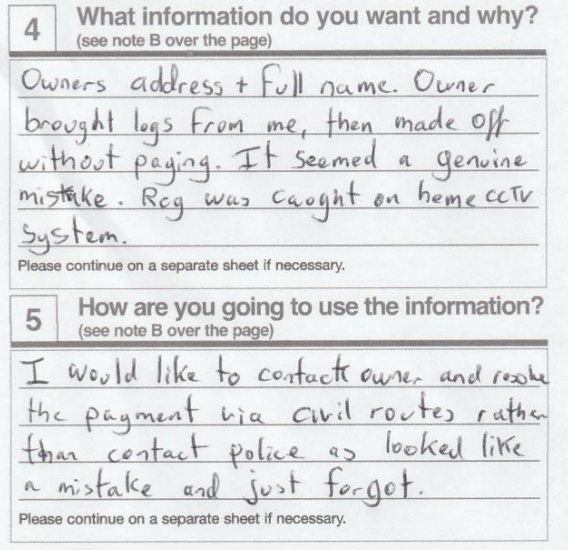 4 What information do you want and why?
(see note B over the page)
Owners address + full name. Owner
brought logs from me, then made off
without paying. It seemed a genuine
mistake. Reg was caught on home CCTV
system.
Please continue on a separate sheet if necessary.
5 How are you going to use the information?
(see note B over the page)
I would like to contact owner and resolve
the payment via civil routes rather
than contact police as looked like
a mistake and just forgot.
Please continue on a separate sheet if necessary.